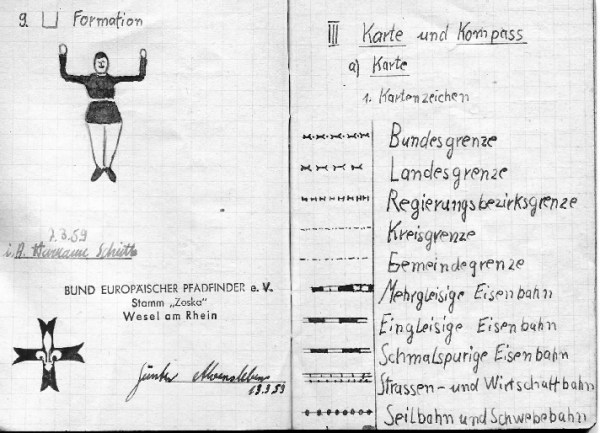 9. Formation
7.3.59
i.A. Hermann Schütte
BUND EUROPÄISCHER PFADFINDER e.V.
Stamm „Zoska"
Wesel am Rhein
Günter
13.3.59
III Karte und Kompass
a) Karte
1. Kartenzeichen
Bundesgrenze
Landesgrenze
Regierungsbezirksgrenze
Kreisgrenze
Gemeindegrenze
Mehrgleisige Eisenbahn
Eingleisige Eisenbahn
Schmalspurige Eisenbahn
Strassen- und Wirtschaftbahn
Seilbahn und Schwebebahn